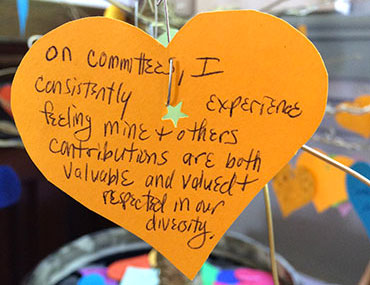 on committees, I
consistently experience
feeling mine + others
contributions are both
valuable and valued +
respected in our
diversity.